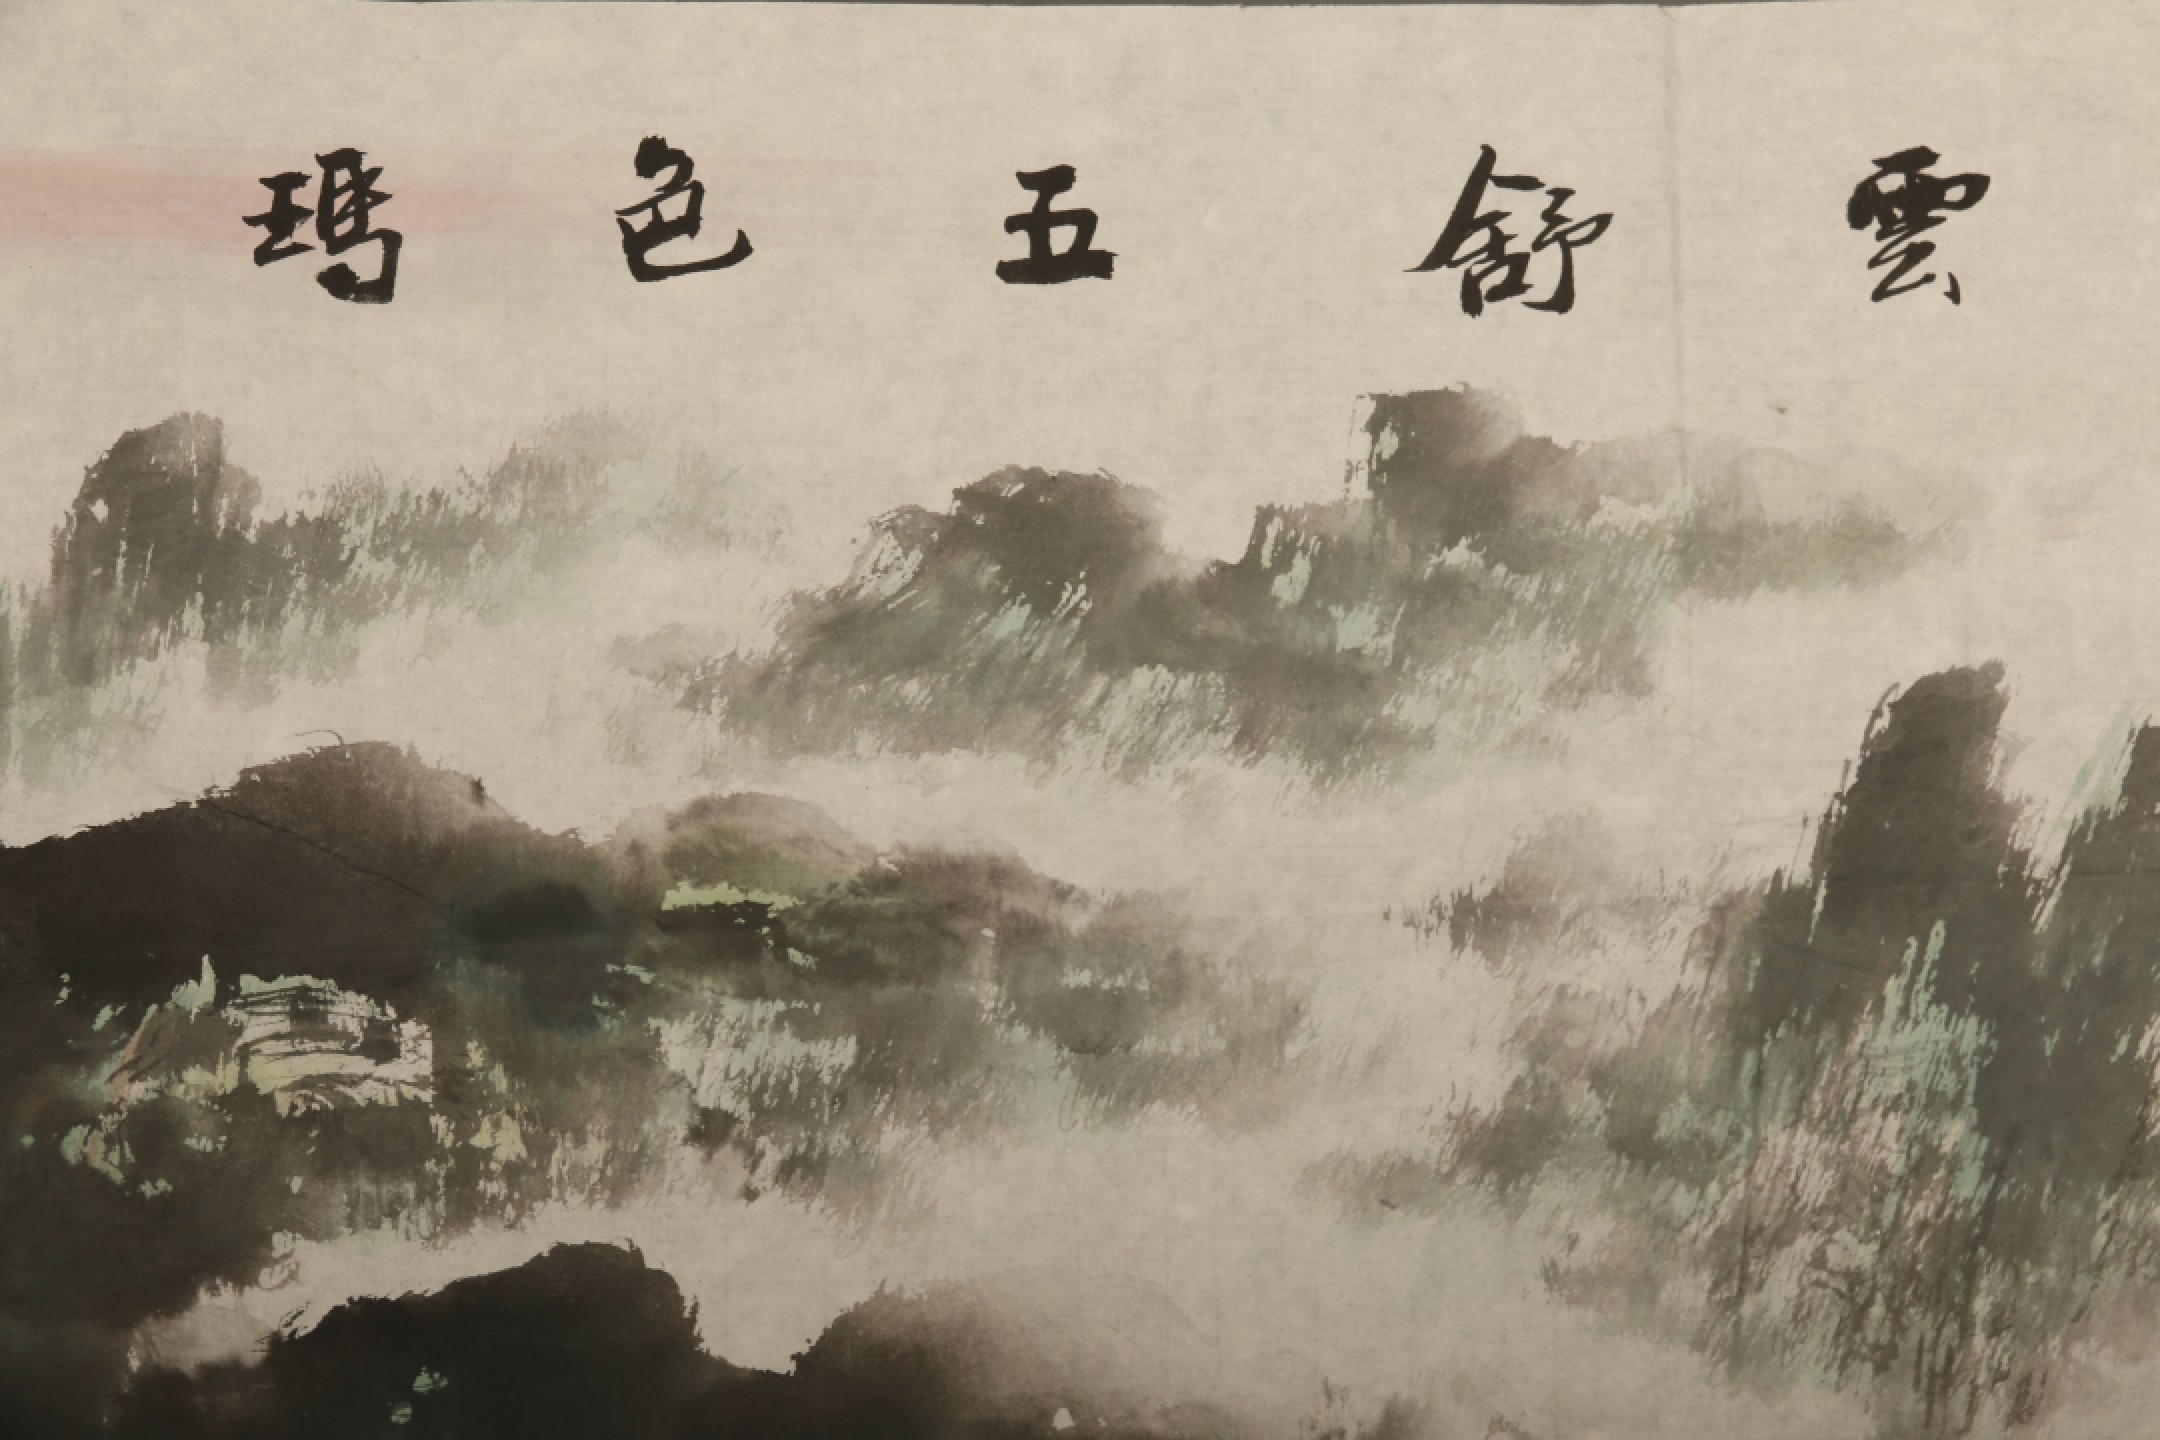 雲舒五色瑪